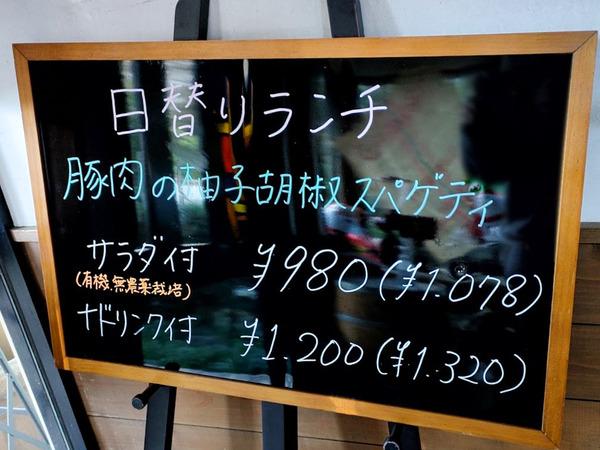 日替りランチ
豚肉の柚子胡椒スパゲティ
サラダ付 ¥980(¥1.078)
(有機.無農薬栽培)
+ドリンク付 ¥1.200(¥1.320)